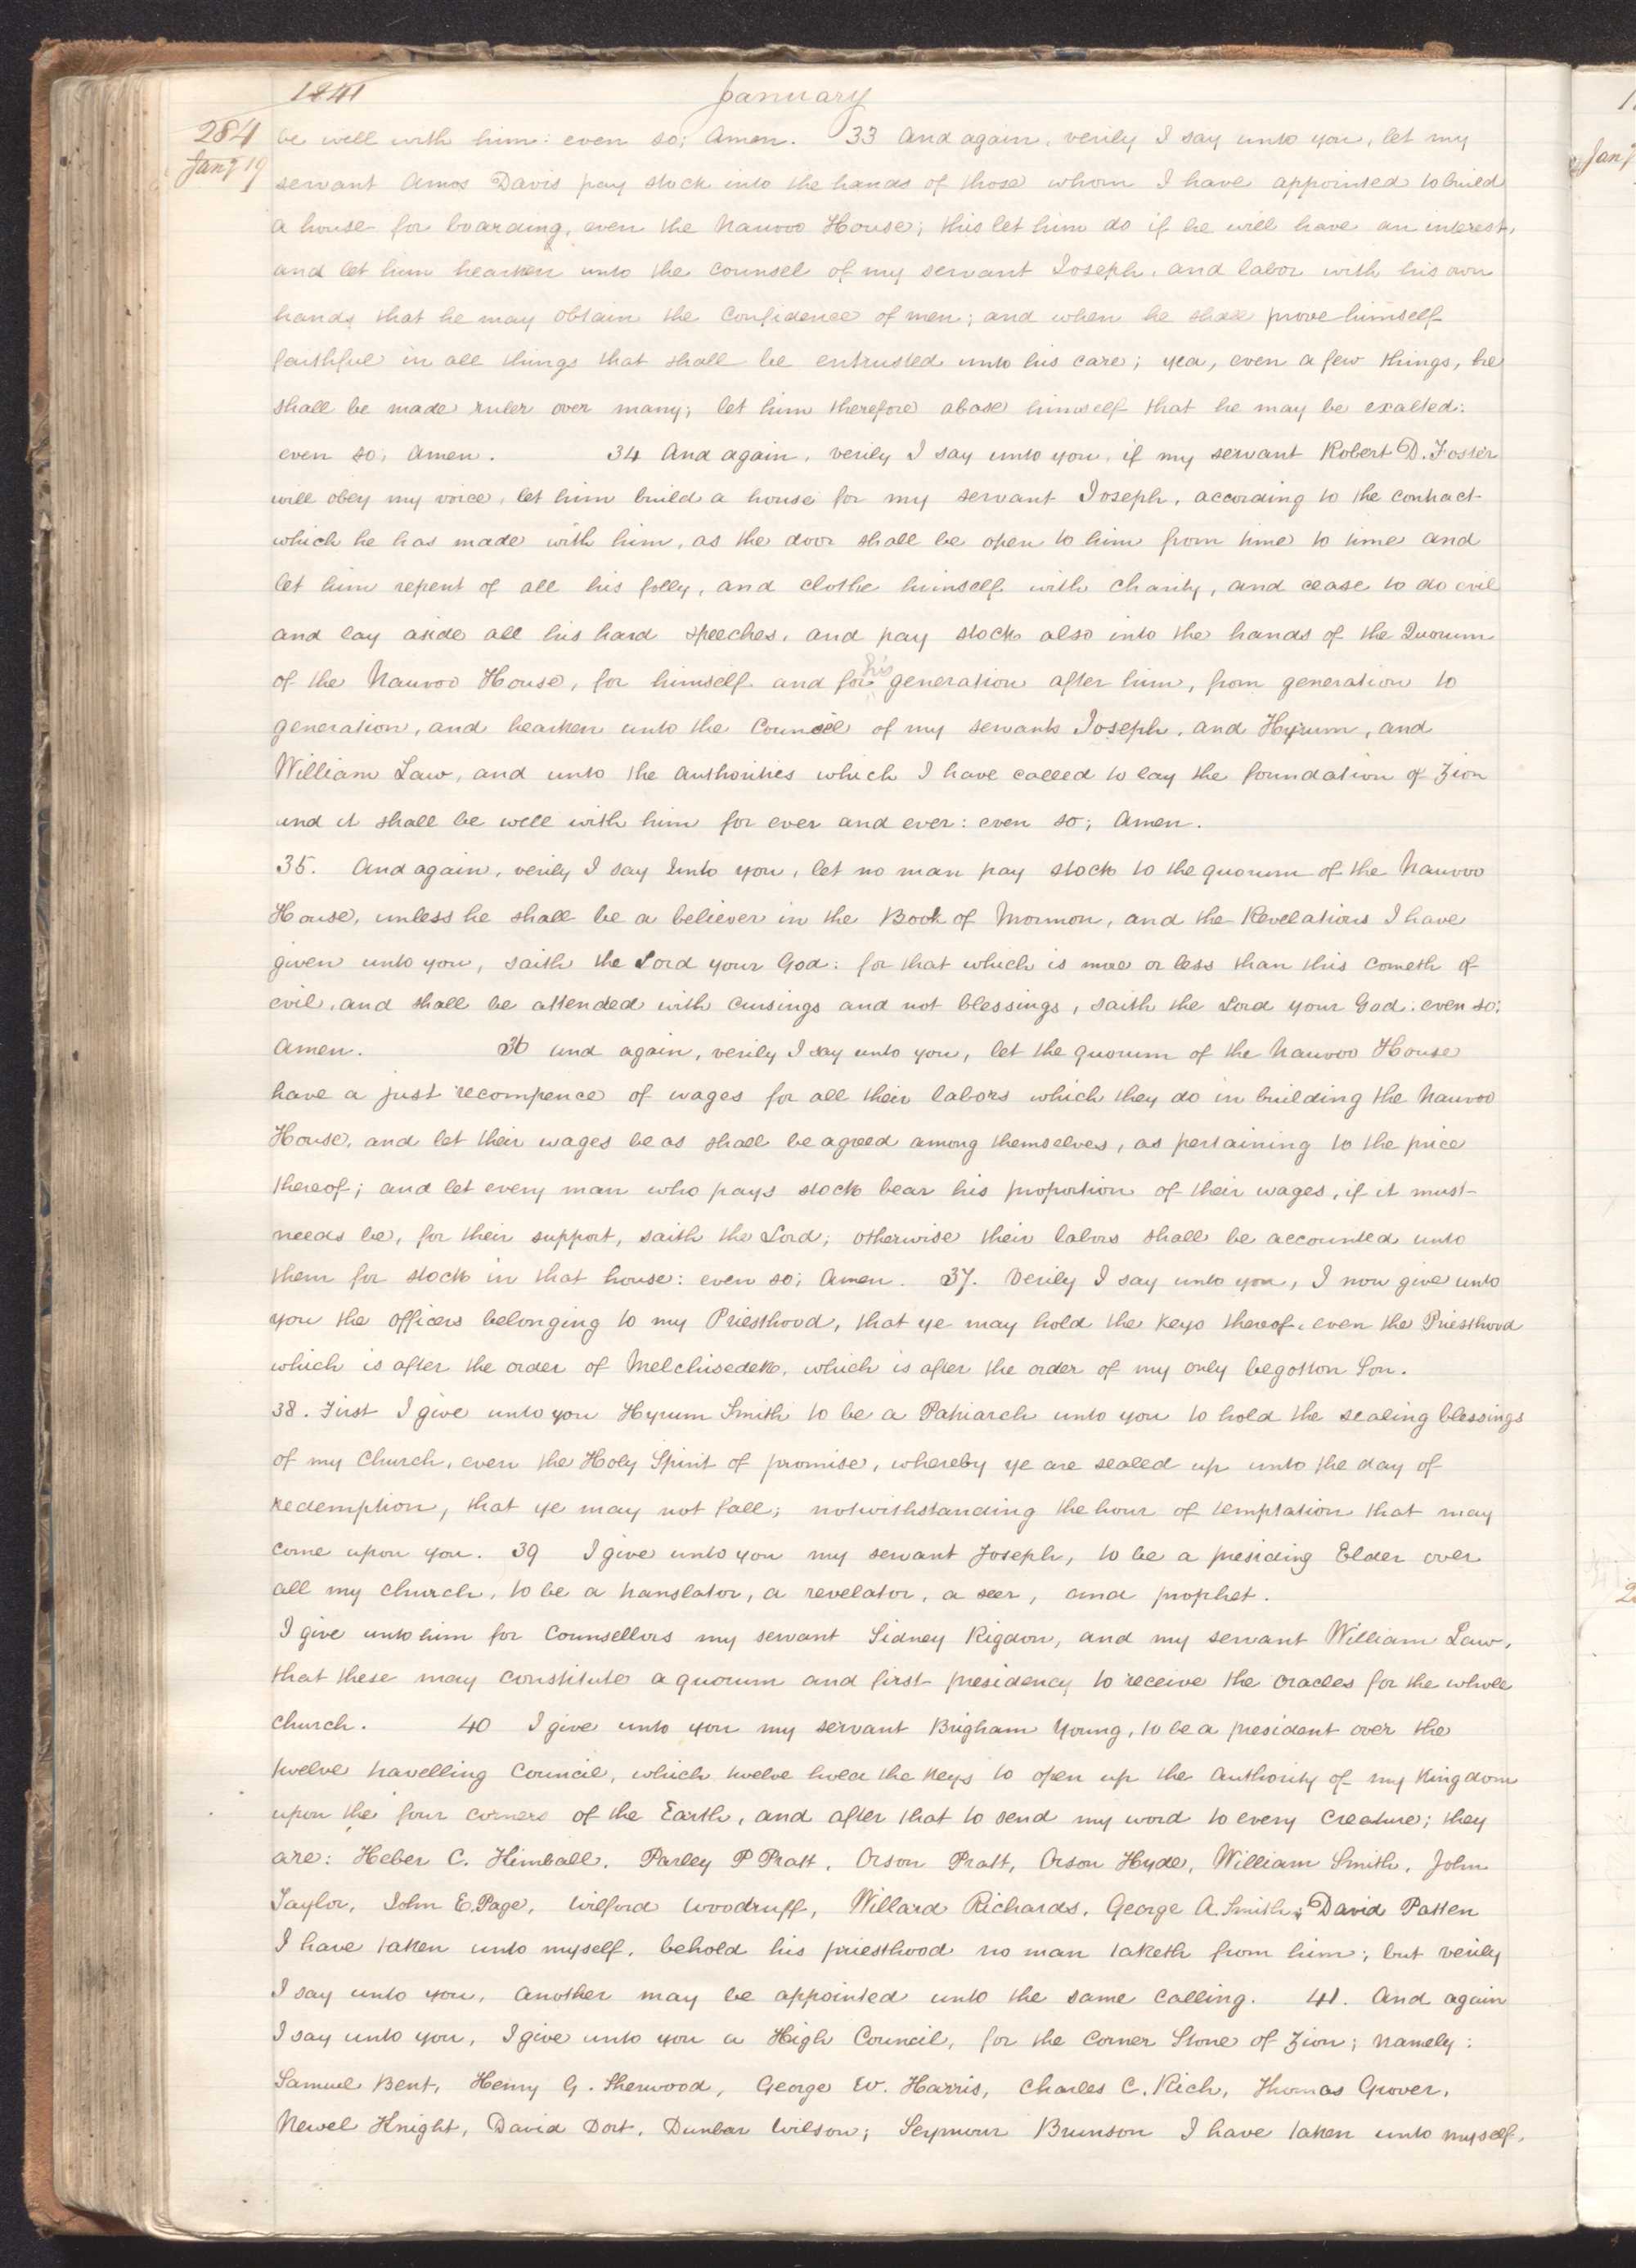 1841 January
284 be well with him: even so; Amen. 33 And again, verily I say unto you, let my
Jany 19 servant Amos Davis pay stock into the hands of those whom I have appointed to build
a house for boarding, even the Nauvoo House; this let him do if he will have an interest,
and let him hearken unto the counsel of my servant Joseph, and labor with his own
hands that he may obtain the Confidence of men; and when he shall prove himself
faithful in all things that shall be entrusted unto his care; yea, even a few things, he
shall be made ruler over many; let him therefore abase himself that he may be exalted:
even so; Amen. 34 And again, verily I say unto you, if my servant Robert D. Foster
will obey my voice, let him build a house for my servant Joseph, according to the contract
which he has made with him, as the door shall be open to him from time to time and
let him repent of all his folly, and clothe himself with charity, and cease to do evil
and lay aside all his hard speeches, and pay stock also into the hands of the Quorum
of the Nauvoo House, for himself and for his generation after him, from generation to
generation, and hearken unto the Council of my servants Joseph, and Hyrum, and
William Law, and unto the authorities which I have called to lay the foundation of Zion
and it shall be well with him for ever and ever: even so; Amen.
35. And again, verily I say unto you, let no man pay stock to the quorum of the Nauvoo
House, unless he shall be a believer in the Book of Mormon, and the Revelations I have
given unto you, saith the Lord your God: for that which is more or less than this cometh of
evil, and shall be attended with cursings and not blessings, saith the Lord your God: even so;
Amen. 36 and again, verily I say unto you, let the quorum of the Nauvoo House
have a just recompence of wages for all their labors which they do in building the Nauvoo
House, and let their wages be as shall be agreed among themselves, as pertaining to the price
thereof; and let every man who pays stock bear his proportion of their wages, if it must
needs be, for their support, saith the Lord; otherwise their labors shall be accounted unto
them for stock in that house: even so; Amen. 37. Verily I say unto you, I now give unto
you the officers belonging to my Priesthood, that ye may hold the keys thereof, even the Priesthood
which is after the order of Melchisedek, which is after the order of my only begotton Son.
38. First I give unto you Hyrum Smith to be a Patriarch unto you to hold the sealing blessings
of my Church, even the Holy Spirit of promise, whereby ye are sealed up unto the day of
redemption, that ye may not fall; notwithstanding the hour of temptation that may
come upon you. 39 I give unto you my servant Joseph, to be a presiding Elder over
all my church, to be a translator, a revelator, a seer, and prophet.
I give unto him for Counsellors my servant Sidney Rigdon, and my servant William Law,
that these may constitute a quorum and first presidency to receive the oracles for the whole
church. 40 I give unto you my servant Brigham Young, to be a president over the
twelve travelling Council, which twelve hold the keys to open up the authority of my kingdom
upon the four corners of the Earth, and after that to send my word to every creature; they
are: Heber C. Kimball, Parley P Pratt, Orson Pratt, Orson Hyde, William Smith, John
Taylor, John E. Page, Wilford Woodruff, Willard Richards, George A. Smith; David Patten
I have taken unto myself, behold his priesthood no man taketh from him; but verily
I say unto you, another may be appointed unto the same calling. 41. And again
I say unto you, I give unto you a High Council, for the Corner Stone of Zion; namely:
Samuel Bent, Henry G. Sherwood, George W. Harris, Charles C. Rich, Thomas Grover,
Newel Knight, David Dort, Dunbar Wilson; Seymour Brunson I have taken unto myself,